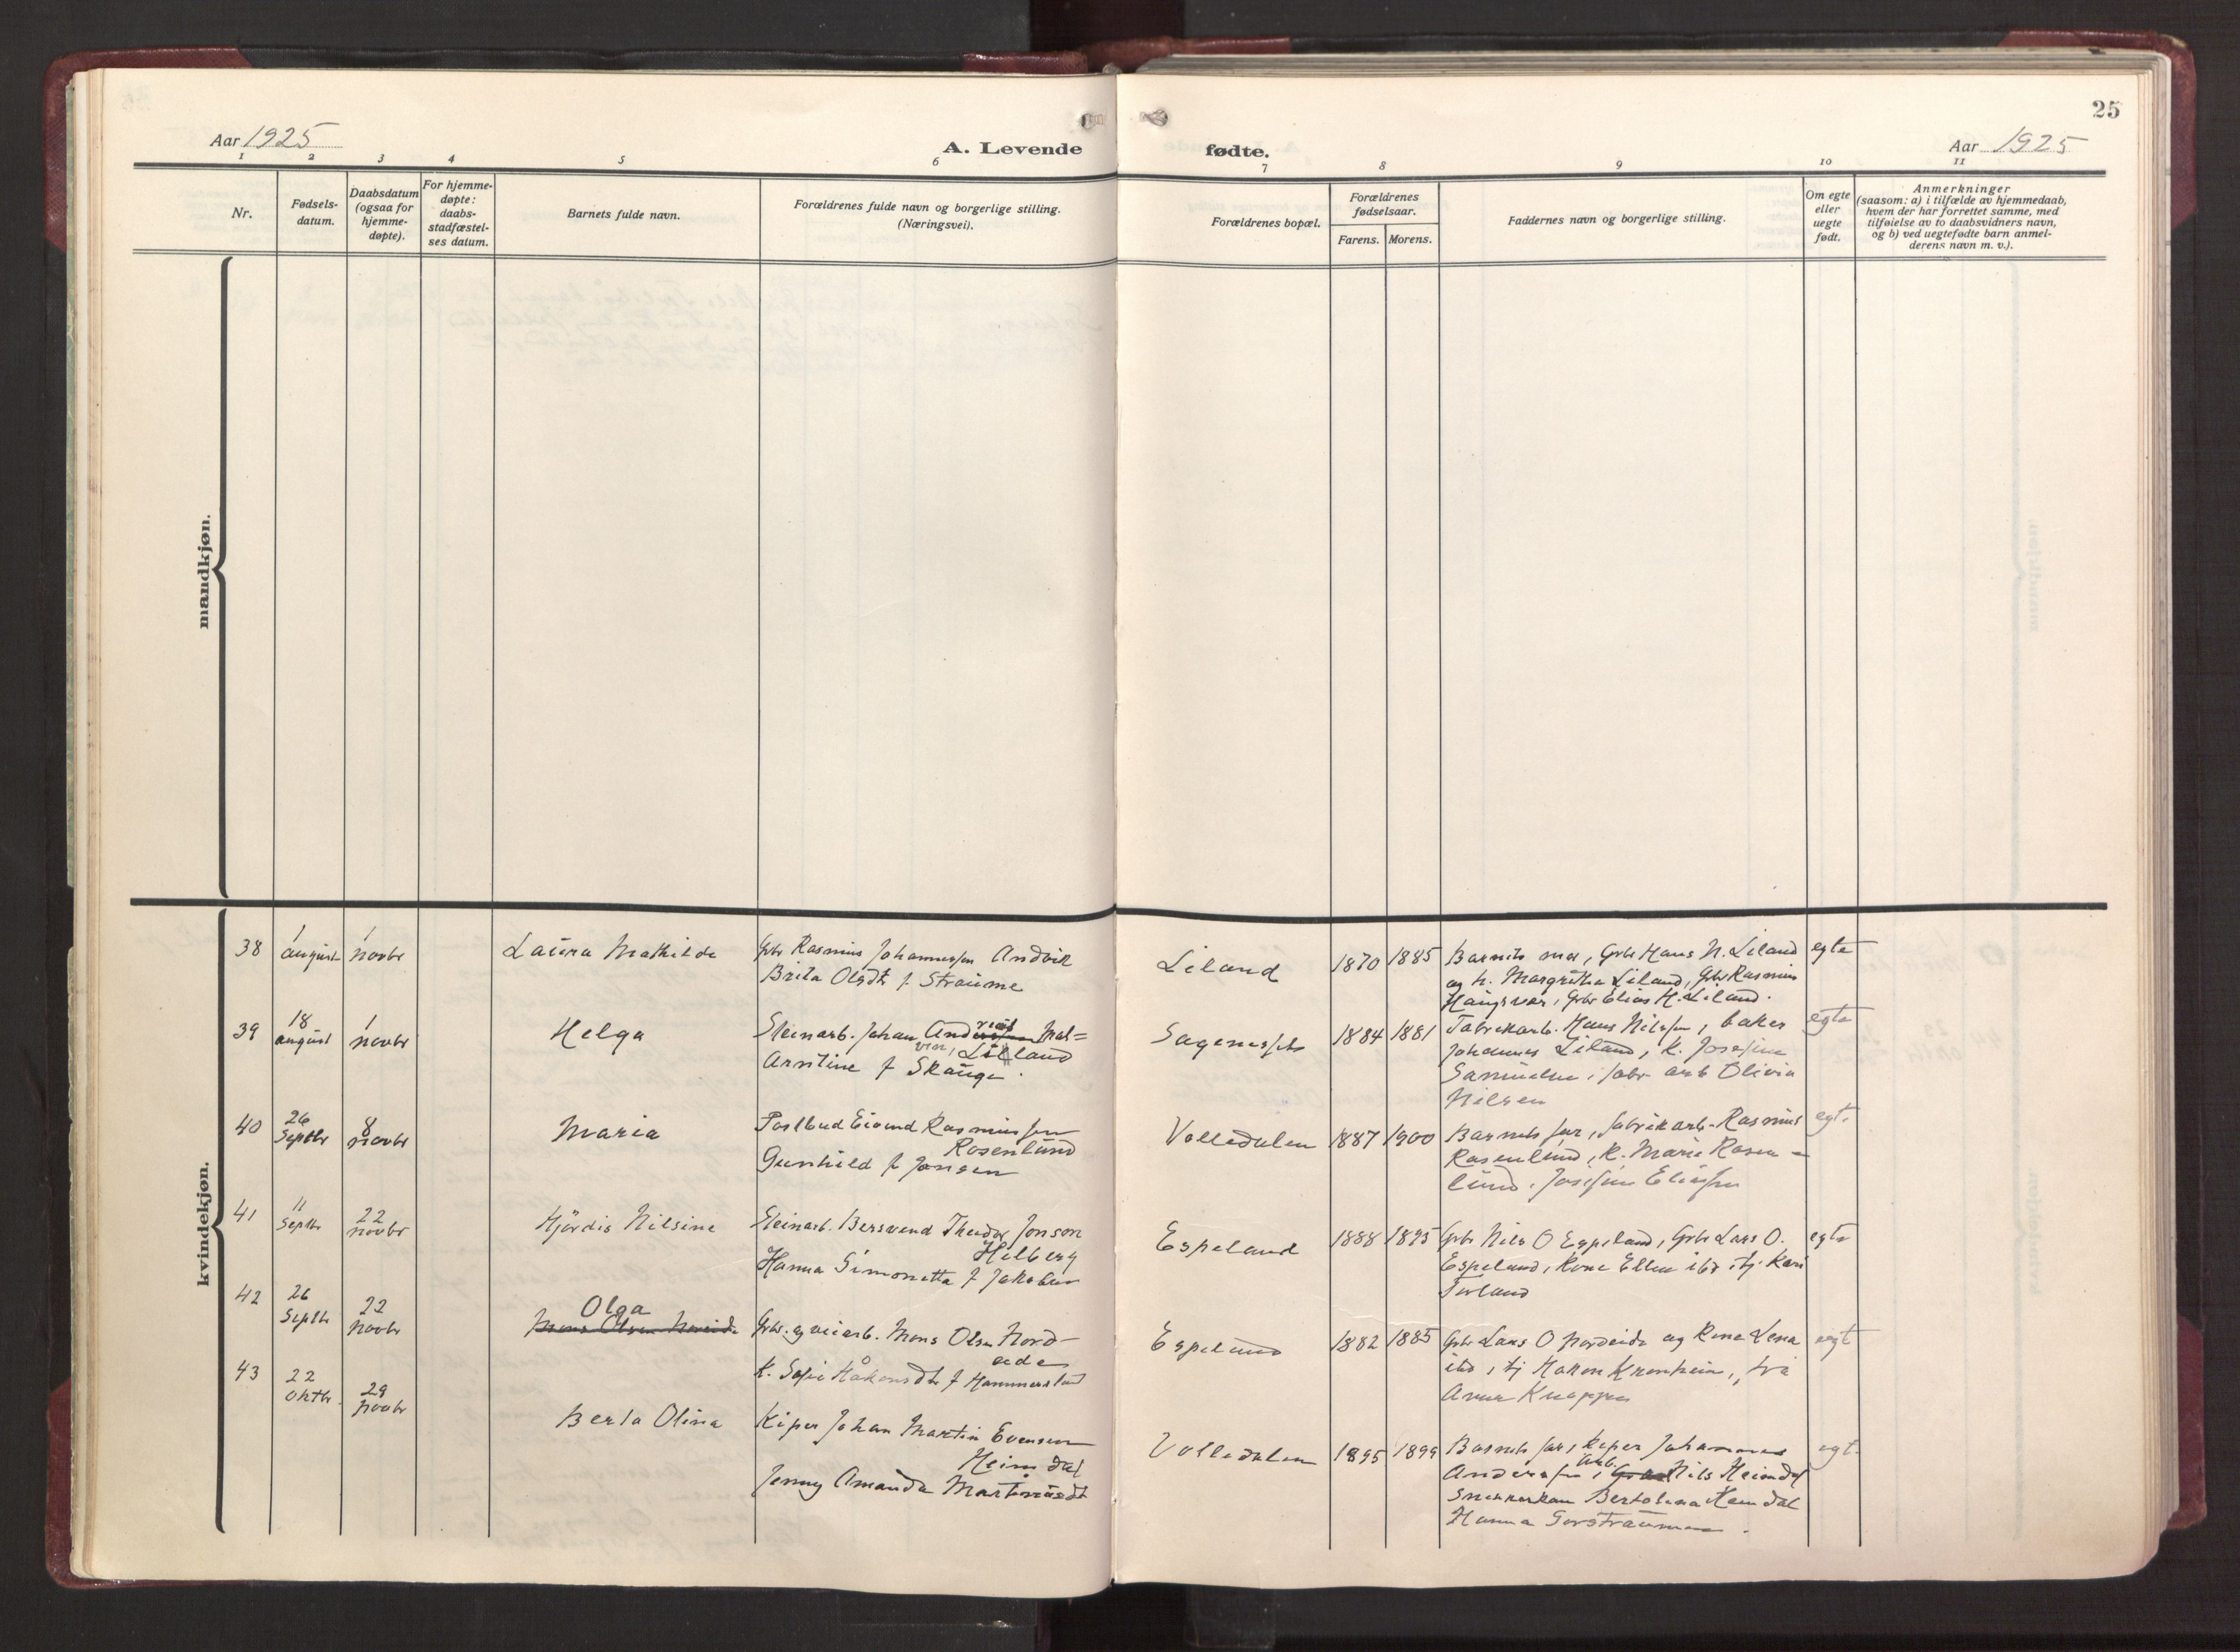 25
Aar 1925
A. Levende
fødte.
Aar 1925
1 2 3 4 5 6
7 8 9 10 11
Nr.
Fødsels-
datum.
Daabsdatum
(ogsaa for
hjemme-
døpte).
For hjemme-
døpte:
daabs-
stadfæstel-
ses datum.
Barnets fulde navn.
Forældrenes fulde navn og borgerlige stilling.
(Næringsvei).
Forældrenes bopæl.
Forældrenes
fødselsaar.
Farens. Morens.
Faddernes navn og borgerlige stilling.
Om egte
eller
uegte
født.
Anmerkninger
(saasom: a) i tilfælde av hjemmedaab,
hvem der har forrettet samme, med
tilføielse av to daabsvidners navn,
og b) ved uegtefødte barn anmel-
derens navn m. v.).
mandkjøn.
kvindekjøn.
38
1
august
1
novbr
Laura Mathilde
Gbr Rasmus Johannessen Andvik
Brita Olsdtr f Straume
Liland
1870
1885
Barnets mor, Gbr Hans N. Liland
og h. Margrethe Liland, Gbr Rasmus
Haugsvær, Gbr Elias H. Liland.
egte
39
18
august
1
novbr
Helga
Steinarb. Johan Mal=
vin, Liland
Arntine f Skauge.
1884
1881
Fabrikarb. Hans Nilssen, baker
Johannes Liland, K. Josefine
Samuelsen, fabr arb Olivia
Nilsen
egte
40
26
Septbr
8
novbr
Maria
Postbud Eivind Rasmussen
Rosenlund
Gunhild f Jansen
Volledalen
1887
1900
Barnets far, fabrikarb. Rasmus
Rosenlund, K. Marie Rosen-
lund, Josefine Eliassen
egt.
41
11
Septbr
22
novbr
Hjördis Nilsine
Steinarb. Bersvend Theodor Jonson
Hilberg
Hanna Simonetta f Jakobsen
Espeland
1888
1895
Gbr Nils O Espeland, Gbr Lars O.
Espeland, Kone Ellen ibd, tj. Kari
egte
42
26
Septbr
22
novbr
Olga
Mons Olsen Noreide
Gbr. og veiarb. Mons Olsen Nord-
eide
K. Sofie Håkonsdtr f Hammersland
Espeland
1882
1885
Gbr Lars O Nordeide og Kone Lena
ibd, tj Hakon
egt
43
22
Oktbr.
29
novbr
Berta Olina
Kiper Johan Martin Evensen
Heimdal
Jenny Amanda Martinusdt
Volledalen
1895
1899
Barnets far, Kiper Johannes
Andersen, arb. Nils Heimdal
Bertolena Heimdal
Hanna
egt.